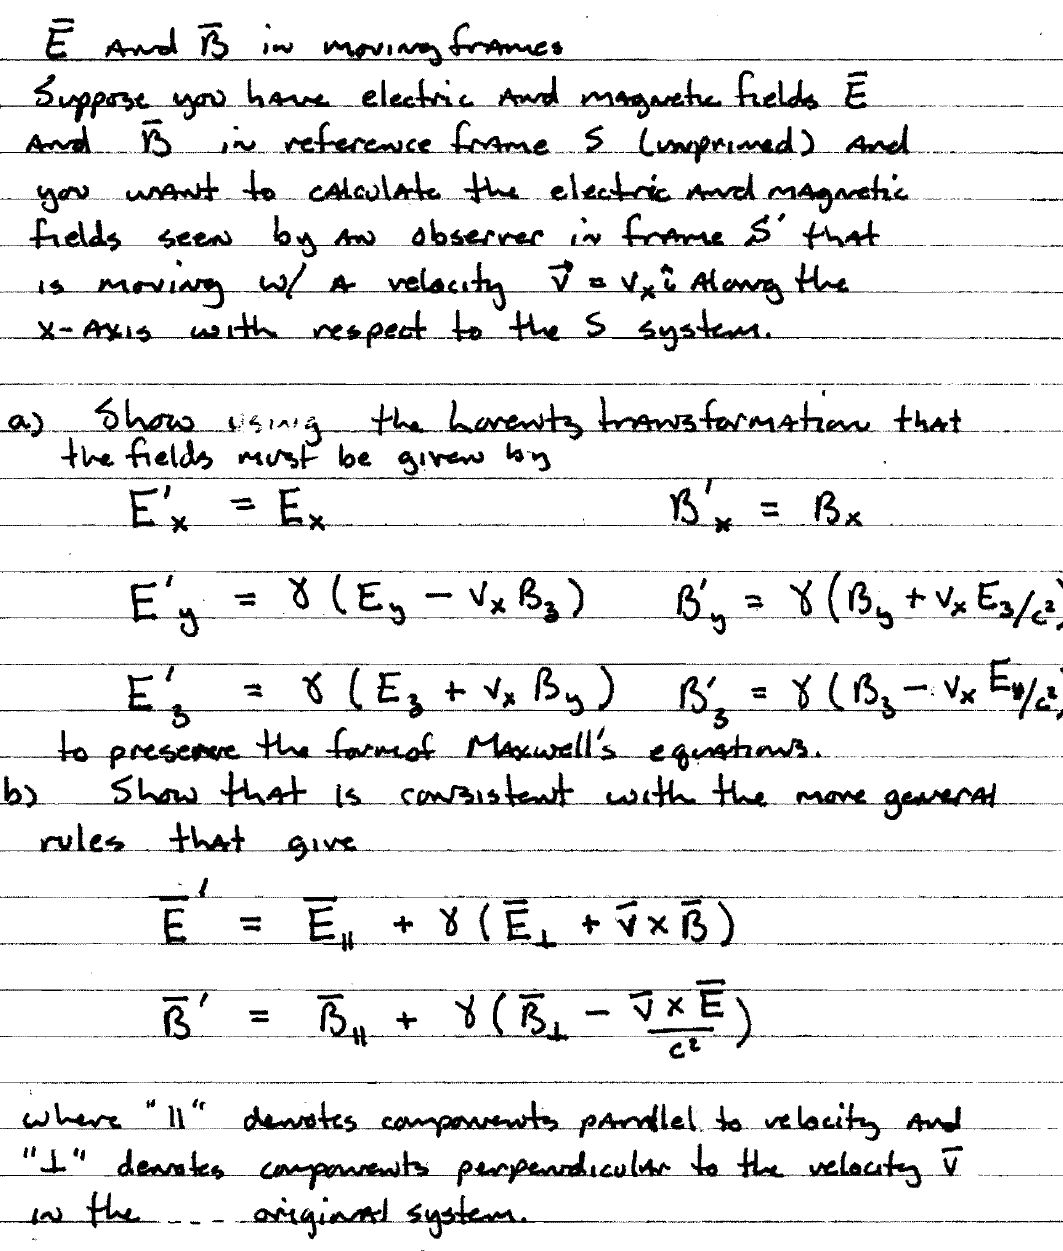 E̅ And B̅ in moving frames
Suppose you have electric and magnetic fields E̅
And B̅ in reference frame S (unprimed) and
you want to calculate the electric and magnetic
fields seen by an observer in frame S' that
is moving w/ a velocity v⃗ = vₓî Along the
x-Axis with respect to the S system.
a) Show using the Lorentz transformation that
the fields must be given by
E'ₓ = Eₓ B'ₓ = Bₓ
E'_y = γ (E_y − vₓ B_z) B'_y = γ (B_y + vₓ E_z/c²)
E'_z = γ (E_z + vₓ B_y) B'_z = γ (B_z − vₓ E_y/c²)
to preserve the form of Maxwell's equations.
b) Show that is consistent with the more general
rules that give
E̅' = E̅_∥ + γ (E̅_⊥ + v̅ × B̅)
B̅' = B̅_∥ + γ (B̅_⊥ − v̅ × E̅/c²)
where "∥" denotes components parallel to velocity and
"⊥" denotes components perpendicular to the velocity v̅
in the --- original system.